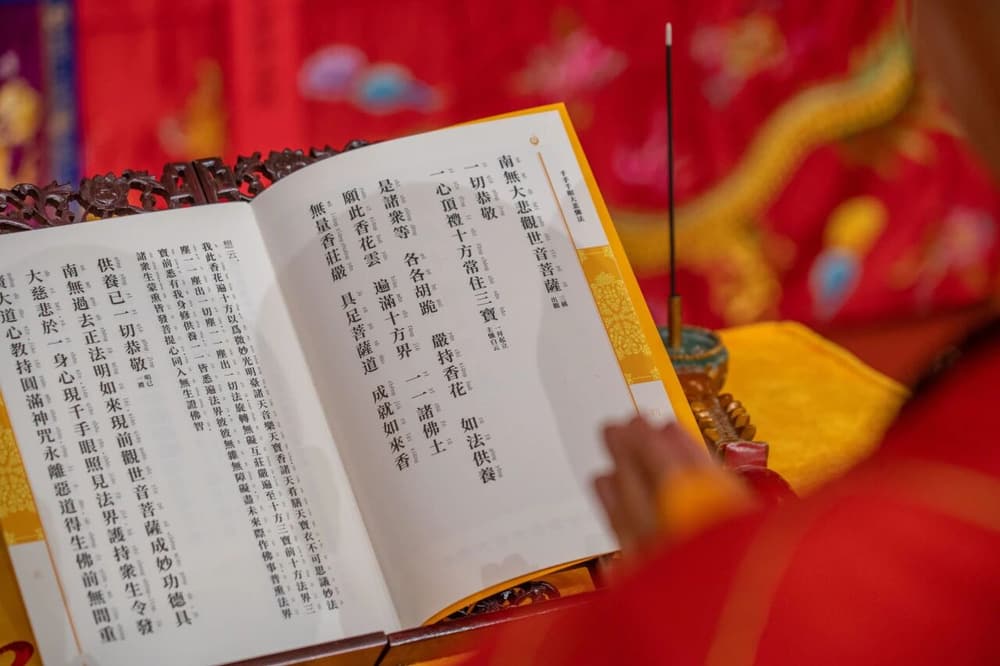 千手千眼大悲懺法
南無大悲觀世音菩薩 三稱 出觀
一切恭敬
一心頂禮十方常住三寶 一拜起立 主懺白云
是諸衆等 各各胡跪 嚴持香花 如法供養
願此香花雲 遍滿十方界 一一諸佛土
無量香莊嚴 具足菩薩道 成就如來香
想云
我此香花遍十方以爲微妙光明臺諸天音樂天寶香諸天肴膳天寶衣不可思議妙法
塵一一塵出一切塵一一塵出一切法旋轉無礙互莊嚴遍至十方三寶前十方法界三
寶前悉有我身修供養一一皆悉遍法界彼彼無雜無障礙盡未來際作佛事普熏法界
諸衆生蒙熏皆發菩提心同入無生證佛智
供養已一切恭敬
南無過去正法明如來現前觀世音菩薩成妙功德具
大慈悲於一身心現千手千眼照見法界護持衆生令發
廣大道心教持圓滿神咒永離惡道得生佛前無間重